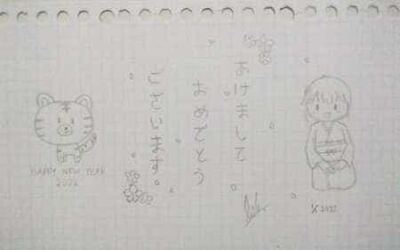 あけまして
おめでとう
ございます。
HAPPY NEW YEAR
2022